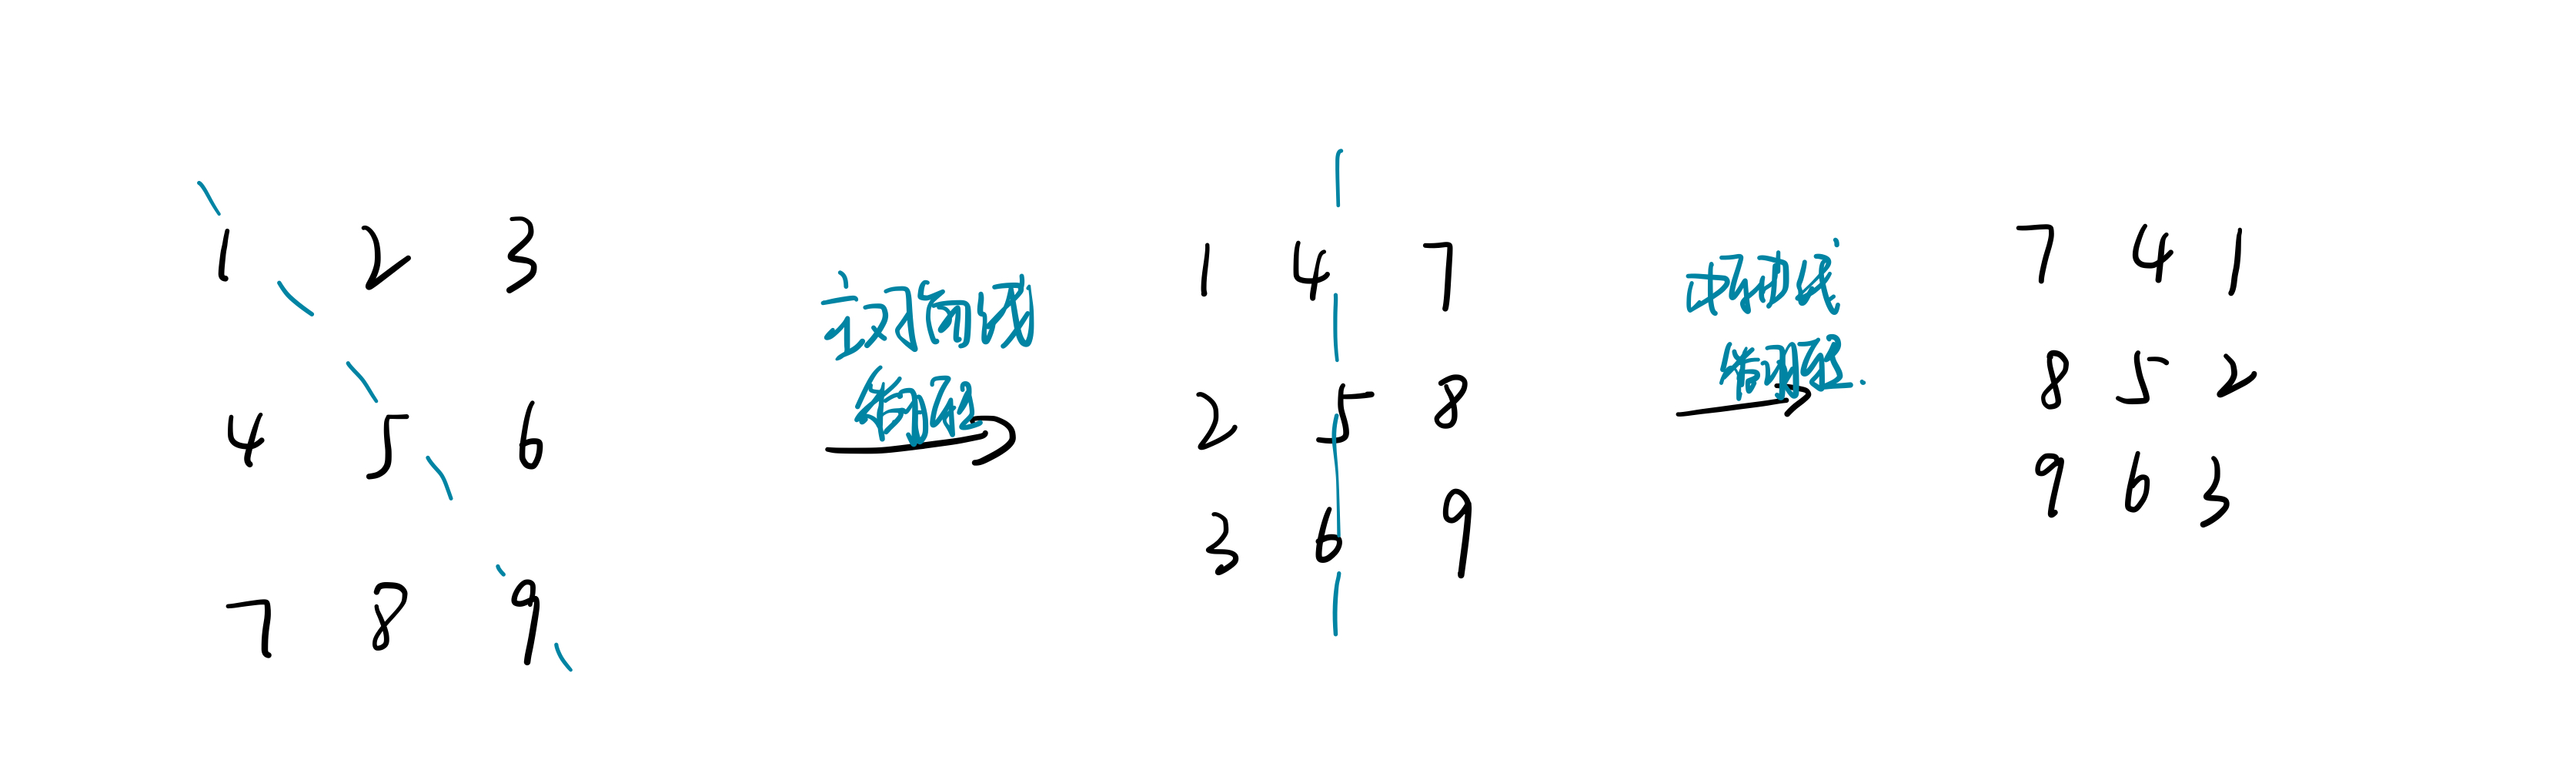 1 2 3
4 5 6
7 8 9
主对角线
1 4 7
2 5 8
3 6 9
7 4 1
8 5 2
9 6 3